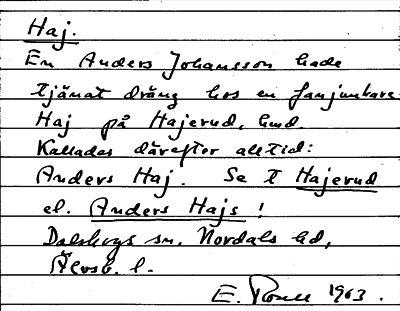 Haj.
En Anders Johansson hade
tjänat dräng hos en fanjunkare
Haj på Hajerud, hmd.
Kallades därefter alltid:
Anders Haj. Se t Hajerud
el. Anders Hajs !
Dalskogs sn. Nordals hd,
Älvsb. l.
E. 1963.